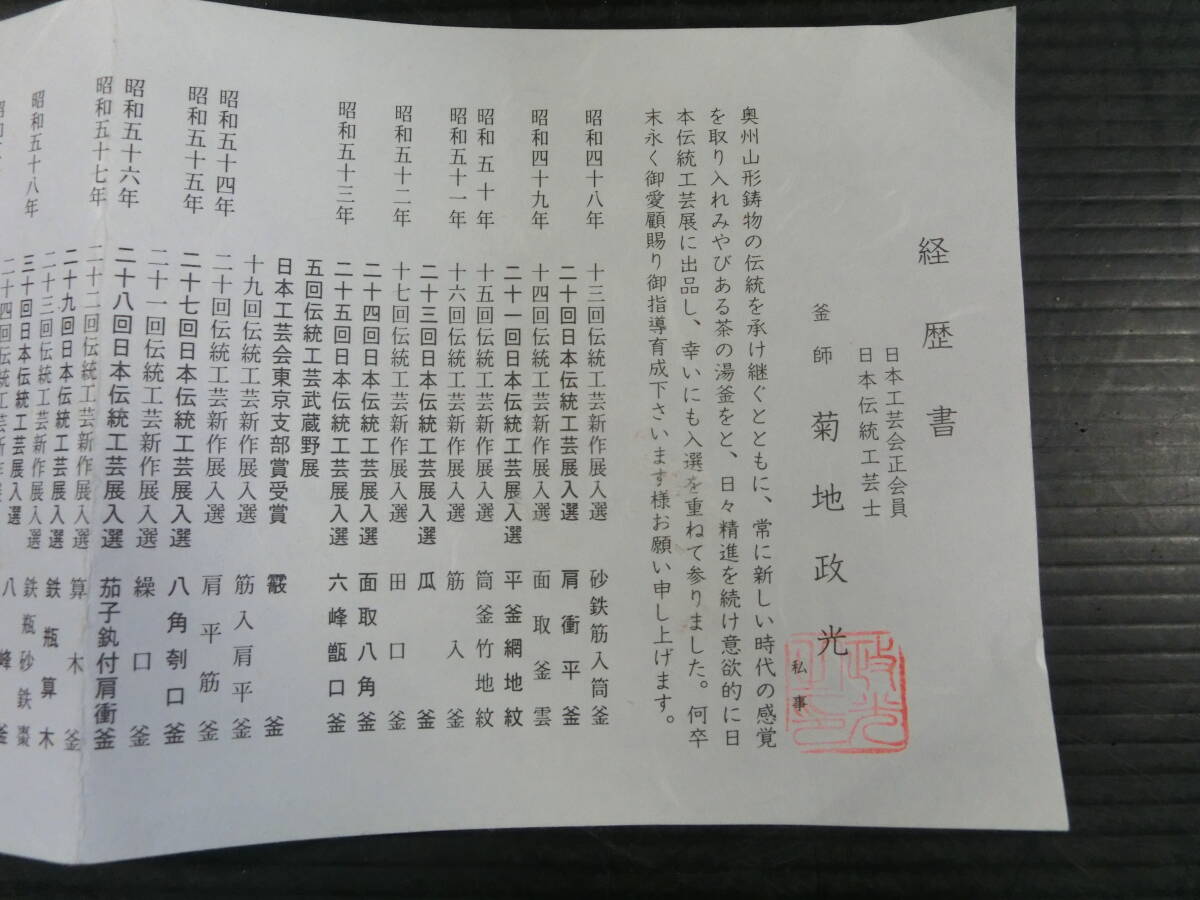 経歴書
日本工芸会正会員
日本伝統工芸士
釜師 菊地政光
私事
奥州山形鋳物の伝統を承け継ぐとともに、常に新しい時代の感覚
を取り入れみやびある茶の湯釜をと、日々精進を続け意欲的に日
本伝統工芸展に出品し、幸いにも入選を重ねて参りました。何卒
末永く御愛顧賜り御指導育成下さいます様お願い申し上げます。
昭和四十八年 十三回伝統工芸新作展入選 砂鉄筋入筒釜
二十回日本伝統工芸展入選 肩衝平釜
昭和四十九年 十四回伝統工芸新作展入選 面取釜雲
二十一回日本伝統工芸展入選 平釜網地紋
昭和五十年 十五回伝統工芸新作展入選 筒釜竹地紋
昭和五十一年 十六回伝統工芸新作展入選 筋入釜
二十三回日本伝統工芸展入選 瓜釜
昭和五十二年 十七回伝統工芸新作展入選 田口釜
二十四回日本伝統工芸展入選 面取八角釜
昭和五十三年 二十五回日本伝統工芸展入選 六峰甑口釜
五回伝統工芸武蔵野展
日本工芸会東京支部賞受賞 霰釜
昭和五十四年 十九回伝統工芸新作展入選 筋入肩平釜
二十回伝統工芸新作展入選 肩平筋釜
昭和五十五年 二十七回日本伝統工芸展入選 八角刳口釜
二十一回伝統工芸新作展入選 繰口釜
昭和五十六年 二十八回日本伝統工芸展入選 茄子釻付肩衝釜
昭和五十七年 二十二回伝統工芸新作展入選 算木釜
二十九回日本伝統工芸展入選 鉄瓶算木
昭和五十八年 二十三回伝統工芸新作展入選 鉄瓶砂鉄棗
三十回日本伝統工芸展入選 八峰釜
二十四回伝統工芸新作展入選